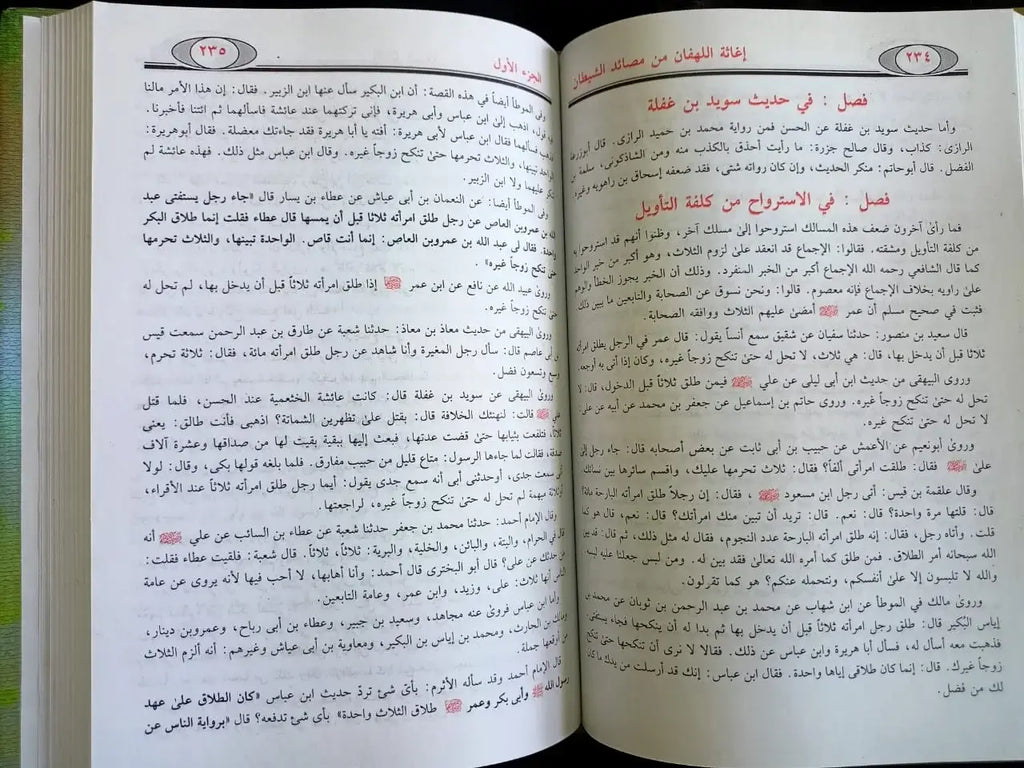 ٢٣٤
إغاثة اللهفان من مصائد الشيطان
فصل : في حديث سويد بن غفلة
وأما حديث سويد بن غفلة عن الحسن فمن رواية محمد بن حميد الرازى. قال أبوزرعة
الرازى: كذاب، وقال صالح جزرة: ما رأيت أحذق بالكذب منه ومن الشاذكونى، سلمة بن
الفضل. قال أبوحاتم: منكر الحديث، وإن كان رواته شتى، فقد ضعفه إسحاق بن راهويه وغيره
فصل : في الاسترواح من كلفة التأويل
فما رأىٰ آخرون ضعف هذه المسالك استروحوا إلى مسلك آخر، وظنوا أنهم قد استروحوا به
من كلفة التأويل ومشقته. فقالوا: الإجماع قد انعقد علىٰ لزوم الثلاث، وهو أكبر من خبر الواحد
كما قال الشافعي رحمه الله الإجماع أكبر من الخبر المنفرد. وذلك أن الخبر يجوز الخطأ والوهم
علىٰ راويه بخلاف الإجماع فإنه معصوم. قالوا: ونحن نسوق عن الصحابة والتابعين ما يبين ذلك
فثبت في صحيح مسلم أن عمر ﷺ أمضىٰ عليهم الثلاث ووافقه الصحابة.
قال سعيد بن منصور: حدثنا سفيان عن شقيق سمع أنساً يقول: قال عمر في الرجل يطلق امرأته
ثلاثا قبل أن يدخل بها، قال: هي ثلاث، لا تحل له حتىٰ تنكح زوجاً غيره، وكان إذا أتى به أوجعه.
وروى البيهقي من حديث ابن أبى ليلى عن علي فيمن طلق ثلاثاً قبل الدخول، قال: لا
تحل له حتىٰ تنكح زوجاً غيره. وروى حاتم بن إسماعيل عن جعفر بن محمد عن أبيه عن علي:
لا تحل له حتىٰ تنكح زوجاً غيره.
وروىٰ أبونعيم عن الأعمش عن حبيب بن أبى ثابت عن بعض أصحابه قال: جاء رجل إلى
علىٰ فقال: طلقت امرأتى ألفاً؟ فقال: ثلاث تحرمها عليك، واقسم سائرها بين نسائك.
وقال علقمة بن قيس: أتى رجل ابن مسعود ، فقال: إن رجلاً طلق امرأته البارحة مائة؟
قال: قلتها مرة واحدة؟ قال: نعم. قال: تريد أن تبين منك امرأتك؟ قال: نعم، قال: هو كما
قلت. وأتاه رجل، فقال: إنه طلق امرأته البارحة عدد النجوم، فقال له مثل ذلك، ثم قال: قد بين
الله سبحانه أمر الطلاق. فمن طلق كما أمره الله تعالىٰ فقد بين له. ومن لبس جعلنا عليه لبسه
والله لا تلبسون إلا علىٰ أنفسكم، ونتحمله عنكم؟ هو كما تقولون.
وروىٰ مالك في الموطأ عن ابن شهاب عن محمد بن عبد الرحمن بن ثوبان عن محمد بن
إياس البُكير قال: طلق رجل امرأته ثلاثاً قبل أن يدخل بها ثم بدا له أن ينكحها فجاء يستفتى،
فذهبت معه أسأل له، فسأل أبا هريرة وابن عباس عن ذلك. فقالا لا نرى أن تنكحها حتىٰ تنكح
زوجاً غيرك. قال: إنما كان طلاقى إياها واحدة. فقال ابن عباس: إنك قد أرسلت من يدك ما كان
لك من فضل.
الجزء الأول
٢٣٥
وفى الموطأ أيضاً في هذه القصة: أن ابن البكير سأل عنها ابن الزبير. فقال: إن هذا الأمر مالنا
فيه قول، اذهب إلى ابن عباس وأبى هريرة، فإنى تركتهما عند عائشة فاسألهما ثم ائتنا فأخبرنا.
فذهب فسألهما فقال ابن عباس لأبى هريرة: أفته يا أبا هريرة فقد جاءتك معضلة. فقال أبوهريرة:
الواحد تبينها، والثلاث تحرمها حتىٰ تنكح زوجاً غيره. وقال ابن عباس مثل ذلك. فهذه عائشة لم
تنكر عليهما ولا ابن الزبير.
وفى الموطأ أيضا: عن النعمان بن أبى عياش عن عطاء بن يسار قال «جاء رجل يستفتى عبد
الله بن عمرو بن العاص عن رجل طلق امرأته ثلاثا قبل أن يمسها قال عطاء فقلت إنما طلاق البكر
واحدة. فقال لى عبد الله بن عمروبن العاص: إنما أنت قاص. الواحدة تبينها، والثلاث تحرمها
حتىٰ تنكح زوجاً غيره» .
وروىٰ عبيد الله عن نافع عن ابن عمر إذا طلق امرأته ثلاثاً قبل أن يدخل بها، لم تحل له
حتىٰ تنكح زوجاً غيره.
وروىٰ البيهقى من حديث معاذ بن معاذ: حدثنا شعبة عن طارق بن عبد الرحمن سمعت قيس
بن أبى عاصم قال: سأل رجل المغيرة وأنا شاهد عن رجل طلق امرأته مائة، فقال: ثلاثة تحرم،
وسبع وتسعون فضل.
وروىٰ البيهقى عن سويد بن غفلة قال: كانت عائشة الخثعمية عند الحسن، فلما قتل
علي قالت: لتهنئك الخلافة قال: بقتل علىٰ تظهرين الشماتة؟ اذهبى فأنت طالق: يعنى
ثلاثاً، فتلفعت بثيابها حتىٰ قضت عدتها، فبعث إليها ببقية بقيت لها من صداقها وعشرة آلاف
صدقة، فقالت لما جاءها الرسول: متاع قليل من حبيب مفارق. فلما بلغه قولها بكى، وقال: لولا
أنى سمعت جدى، أوحدثنى أبى أنه سمع جدى يقول: أيما رجل طلق امرأته ثلاثاً عند الأقراء،
أوثلاثة مبهمة لم تحل له حتىٰ تنكح زوجاً غيره، لراجعتها.
وقال الإمام أحمد: حدثنا محمد بن جعفر حدثنا شعبة عن عطاء بن السائب عن علي أنه
قال في الحرام، والبتة، والبائن، والخلية، والبرية: ثلاثاً، ثلاثاً. قال شعبة: فلقيت عطاء فقلت:
من حدثك عن على؟ قال أبو البخترى قال أحمد: وأنا أهابها، لا أحب فيها لأنه يروى عن عامة
الناس أنها ثلاث: على، وزيد، وابن عمر، وعامة التابعين.
وأما ابن عباس فروىٰ عنه مجاهد، وسعيد بن جبير، وعطاء بن أبى رباح، وعمروبن دينار،
ومالك بن الحارث، ومحمد بن إياس بن البكير، ومعاوية بن أبى عياش وغيرهم: أنه ألزم الثلاث
من أوقعها جملة.
قال الإمام أحمد وقد سأله الأثرم: بأىّ شئ تردّ حديث ابن عباس «كان الطلاق علىٰ عهد
رسول الله ﷺ وأبى بكر وعمر طلاق الثلاث واحدة» بأى شئ تدفعه؟ قال «برواية الناس عن